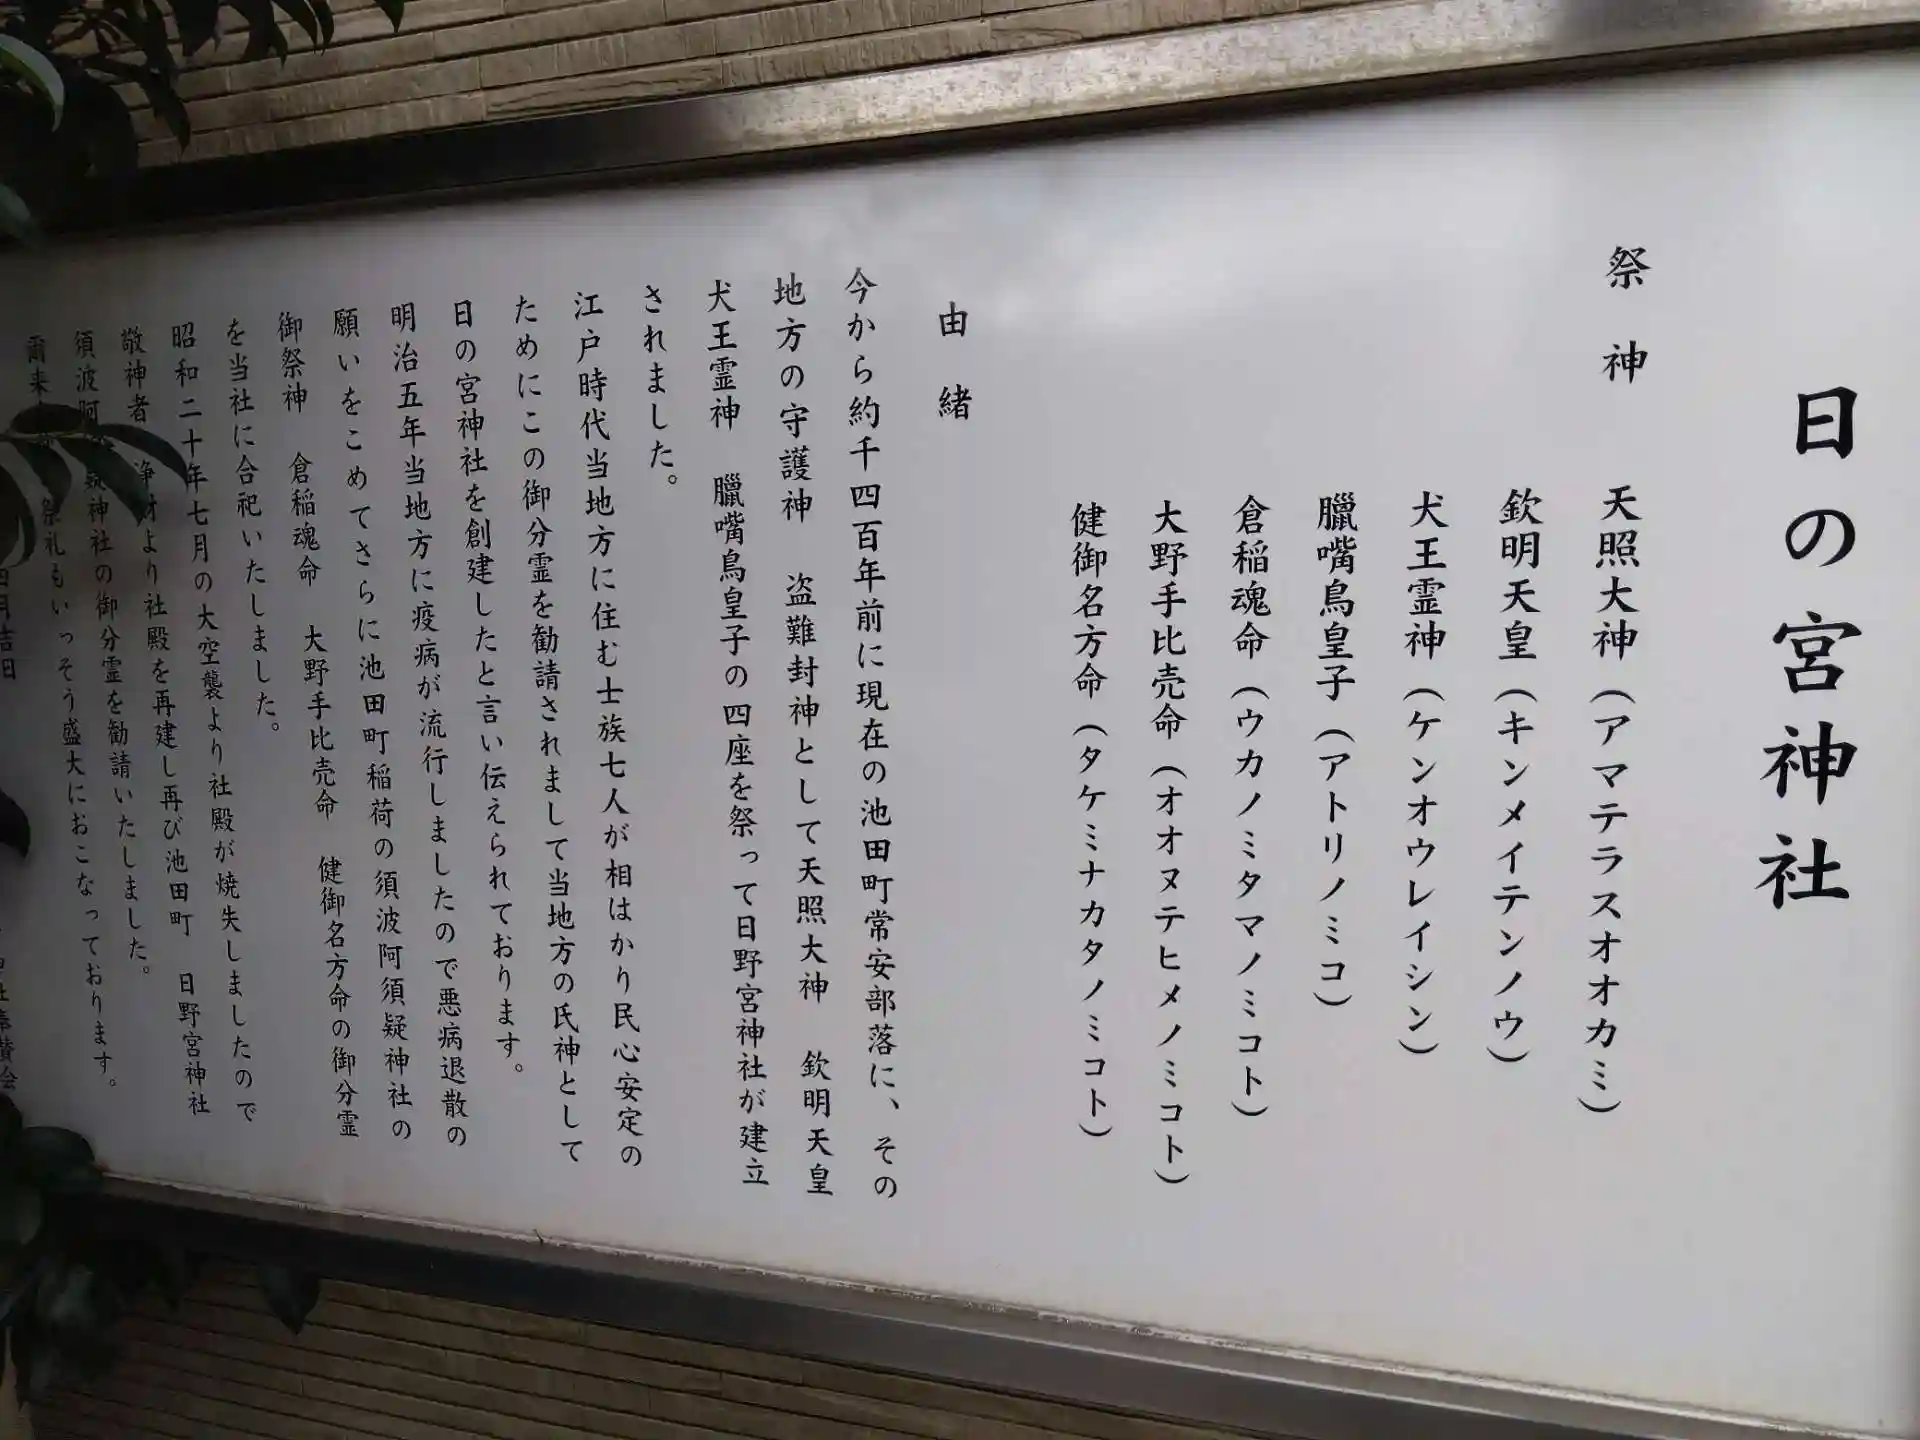 日の宮神社
祭神 天照大神（アマテラスオオカミ）
欽明天皇（キンメイテンノウ）
犬王霊神（ケンオウレイシン）
臘嘴鳥皇子（アトリノミコ）
倉稲魂命（ウカノミタマノミコト）
大野手比売命（オオヌテヒメノミコト）
健御名方命（タケミナカタノミコト）
由緒
今から約千四百年前に現在の池田町常安部落に、その
地方の守護神 盗難封神として天照大神 欽明天皇
犬王霊神 臘嘴鳥皇子の四座を祭って日野宮神社が建立
されました。
江戸時代当地方に住む士族七人が相はかり民心安定の
ためにこの御分霊を勧請されまして当地方の氏神として
日の宮神社を創建したと言い伝えられております。
明治五年当地方に疫病が流行しましたので悪病退散の
願いをこめてさらに池田町稲荷の須波阿須疑神社の
御祭神 倉稲魂命 大野手比売命 健御名方命の御分霊
を当社に合祀いたしました。
昭和二十年七月の大空襲より社殿が焼失しましたので
敬神者 浄財より社殿を再建し再び池田町 日野宮神社
須波阿 疑神社の御分霊を勧請いたしました。
爾来 祭礼もいっそう盛大におこなっております。
四月吉日 奉賛会